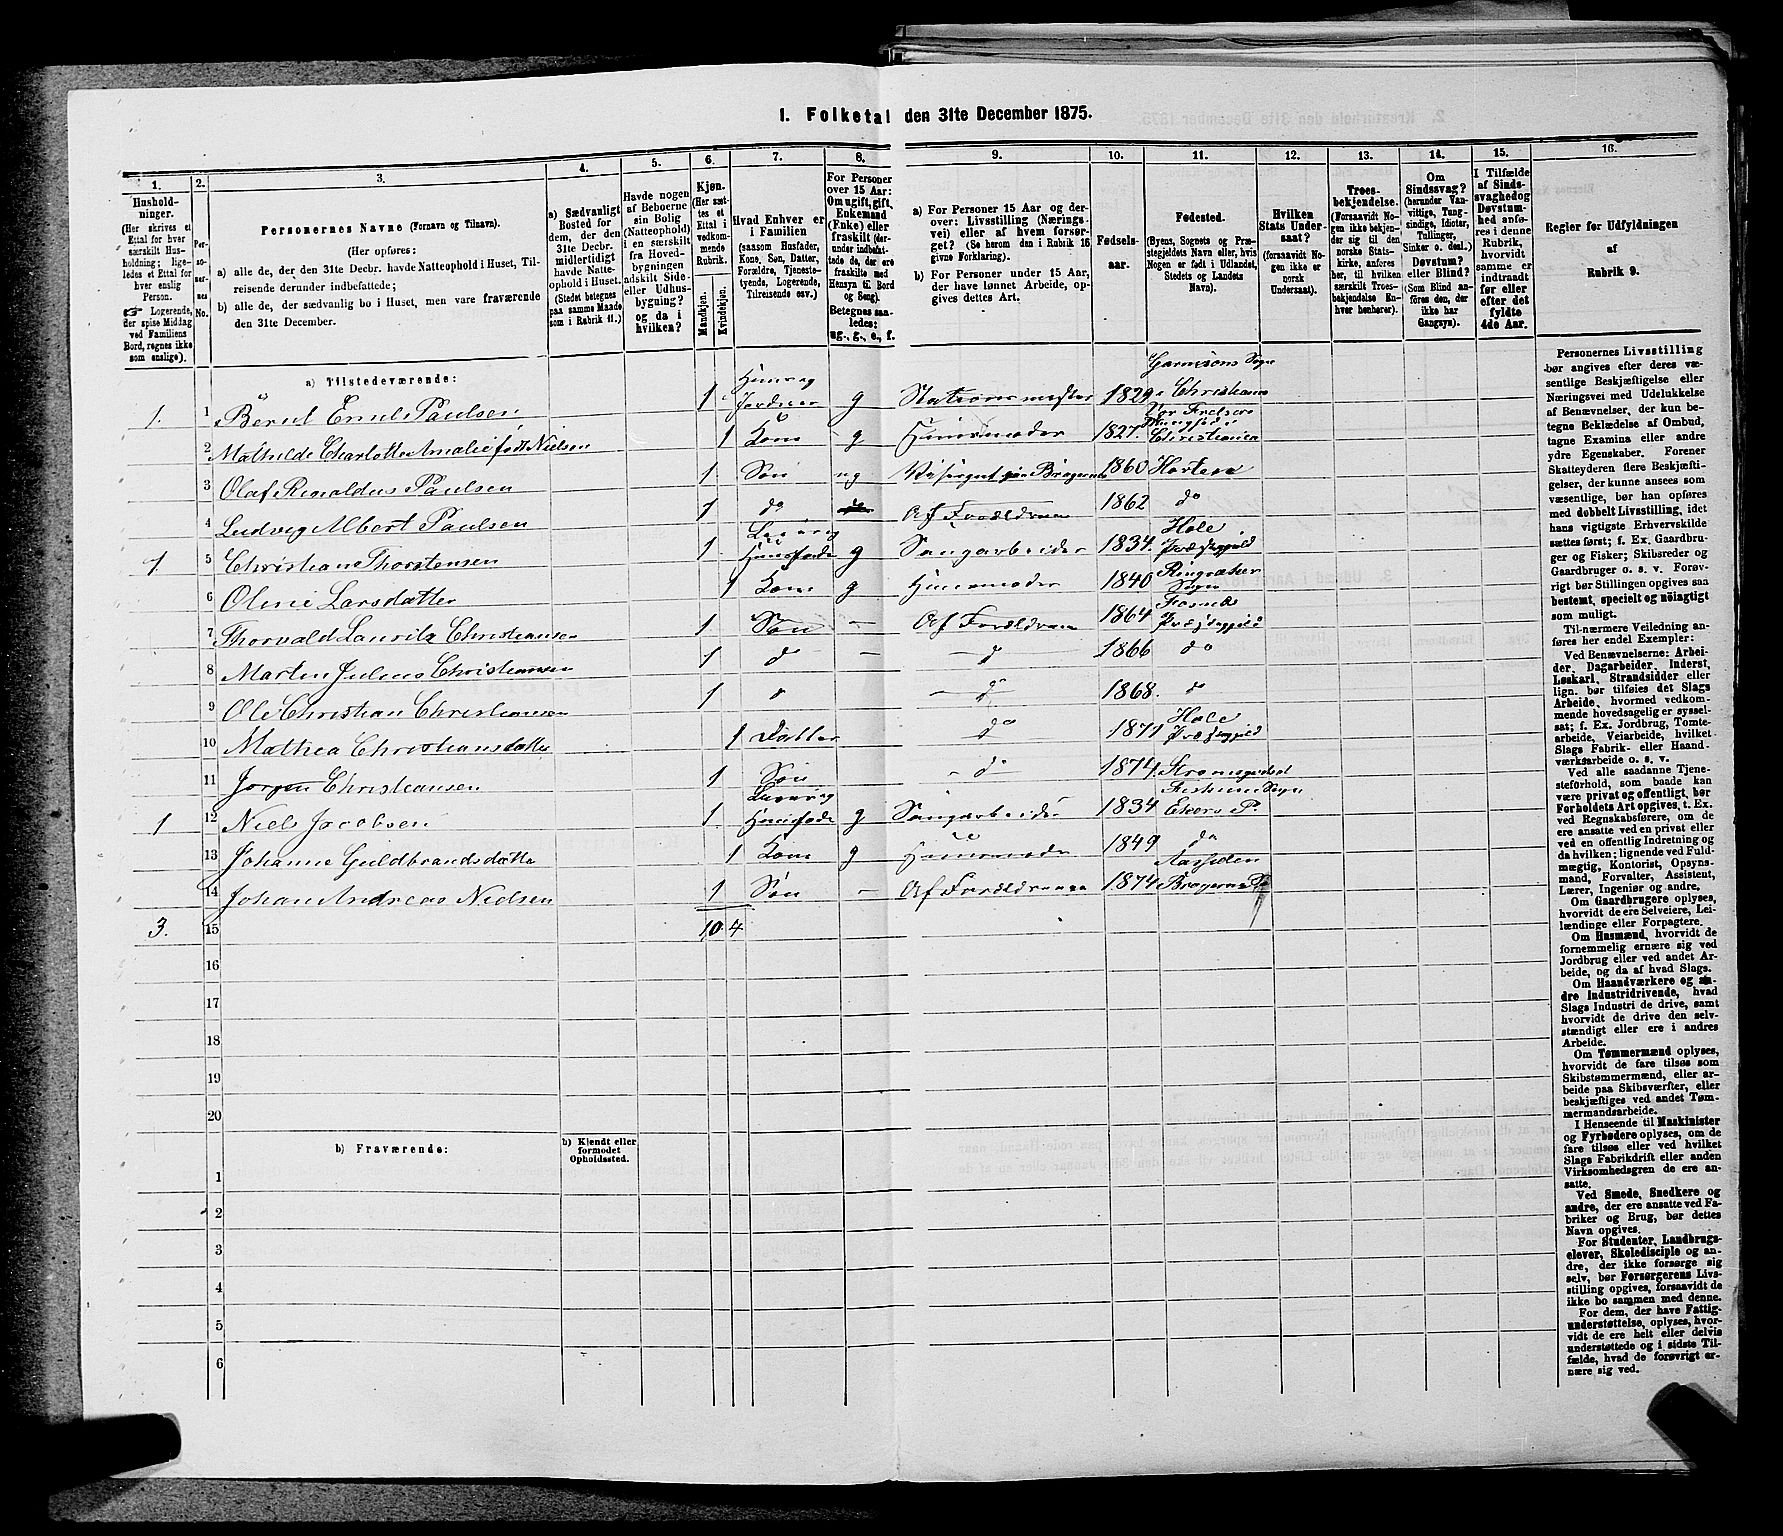 1. Folketal den 31te December 1875.
1. 2. 3. 4. 5. 6. 7. 8. 9. 10. 11. 12. 13. 14. 15. 16.
Hushold-
ninger.
(Her skrives et
Ettal for hver
særskilt Hus-
holdning; lige-
ledes et Ettal for
hver enslig
Person.
☞ Logerende,
der spise Middag
ved Familiens
Bord, regnes ikke
som enslige).
Per-
so-
ner-
nes
No.
Personernes Navne (Fornavn og Tilnavn).
(Her opføres:
a) alle de, der den 31te Decbr. havde Natteophold i Huset, Til-
reisende derunder indbefattede;
b) alle de, der sædvanlig bo i Huset, men vare fraværende
den 31te December.
a) Sædvanligt
Bosted for
dem, der den
31te Decbr.
midlertidigt
havde Natte-
ophold i Huset.
(Stedet betegnes
paa samme Maade
som i Rubrik 11.)
Havde nogen
af Beboerne
sin Bolig
(Natteophold)
i en særskilt
fra Hoved-
bygningen
adskilt Side-
eller Udhus-
bygning?
og da i
hvilken?
Kjøn.
(Her sæt-
tes et
Ettal i
vedkom-
mende
Rubrik.
Mandkjøn.
Kvindekjøn.
Hvad Enhver er
i Familien
(saasom Husfader,
Kone, Søn, Datter,
Forældre, Tjeneste-
tyende, Logerende,
Tilreisende osv.)
For Personer
over 15 Aar:
Om ugift, gift,
Enkemand
(Enke) eller
fraskilt (der-
under indbefat-
tede de, der ere
fraskilte med
Hensyn til Bord
og Seng).
Betegnes saa-
ledes:
ug., g., e., f.
a) For Personer 15 Aar og der-
over: Livsstilling (Nærings-
vei) eller af hvem forsør-
get? (Se herom den i Rubrik 16
givne Forklaring).
b) For Personer under 15 Aar,
der have lønnet Arbeide, op-
gives dettes Art.
Fødsels-
aar.
Fødested.
(Byens, Sognets og Præ-
stegjeldets Navn eller, hvis
Nogen er født i Udlandet,
Stedets og Landets
Navn).
Hvilken
Stats Under-
saat?
(forsaavidt No-
gen ikke er
norsk
Undersaat).
Troes-
bekjendelse.
(Forsaavidt No-
gen ikke bekjen-
der sig til den
norske Stats-
kirke, anføres
her, til hvilken
særskilt Troes-
bekjendelse En-
hver henhører).
Om
Sindssvag?
(herunder Van-
vittige, Tung-
sindige, Idioter,
Tullinger,
Sinker o. desl.)
Døvstum?
eller Blind?
(Som Blind an-
føres den, der
ikke har
Gangsyn).
I Tilfælde
af Sinds-
svaghed og
Døvstum-
hed anfø-
res i denne
Rubrik,
hvorvidt
samme er
indtraadt
før eller
efter det
fyldte
4de Aar.
Regler for Udfyldningen
af
Rubrik 9.
a) Tilstedeværende:
1. 1 Bernt Emil Paulsen 1 g Stationsmester 1829 Garnisons Sogn i Christiania
2 Mathilde Charlotte Amalie født Nielsen 1 Kone g Huusmoder 1827. Vor Frelsers Christiania
3 Olaf Reinoldus Paulsen 1 Søn ug 1860 Horten
4 Ludvig Albert Paulsen 1 do Af Forældrene 1862 do
1. 5 Christian Thorstensen 1. Huusfader g Saugarbeider 1834. Hole Præstegjeld
6 Oline Larsdatter 1 Kone g Huusmoder 1840 Ringsaker Sogn
7 Thorvald Lauritz Christiansen 1 Søn — Af Forældrene 1864 Præstegjeld
8 Martin Julius Christiansen 1 do — do 1866 do
9 Ole Christian Christiansen 1 do do 1868. do
10 Mathea Christiansdatter 1 Datter do 1871 Hole Præstegjeld
11 Jorgen Christiansen 1 Søn do 1874 Strømsgodset
1 12 Niels Jacobsen 1. Huusfader g Saugarbeider 1834 Fiskum Sogn Ekers P.
13 Johanne Guldbrandsdatter 1 Kone g Huusmoder 1849 do
14 Johan Andreas Nielsen 1 Søn — Af Forældrene 1874 Aassiden Bragernes P
3. 15 10 4
16
17
18
19
20
b) Fraværende:
b) Kjendt eller
formodet
Opholdssted.
1
2
3
4
5
6
Personernes Livsstilling
bør angives efter deres væ-
sentlige Beskjæftigelse eller
Næringsvei med Udelukkelse
af Benævnelser, der kun be-
tegne Beklædelse af Ombud,
tagne Examina eller andre
ydre Egenskaber. Forener
Skatteyderen flere Beskjæfti-
gelser, der kunne ansees som
væsentlige, bør han opføres
med dobbelt Livsstilling, idet
hans vigtigste Erhvervskilde
sættes først; f. Ex. Gaardbru-
ger og Fisker; Skibsreder og
Gaardbruger o. s. v. Forøv-
rigt bør Stillingen opgives saa
bestemt, specielt og nøiagtigt
som muligt.
Til-nærmere Veiledning an-
føres her endel Exempler:
Ved Benævnelserne: Arbei-
der, Dagarbeider, Inderst,
Løskarl, Strandsidder eller
lign. bør tilføies det Slags
Arbeide, hvormed vedkom-
mende hovedsagelig er syssel-
sat; f. Ex. Jordbrug, Tomte-
arbeide, Veiarbeide, hvilket
Slags Fabrik- eller Haand-
værksarbeide o. s. v.
Ved alle saadanne Tjene-
steforhold, som baade kan
være privat og offentligt, bør
Forholdets Art opgives, t. Ex.
ved Regnskabsførere, om de
ere ansatte ved en privat eller
en offentlig Indretning og
da hvilken; lignende ved Fuld-
mægtig, Kontorist, Opsyns-
mand, Forvalter, Assistent,
Lærer, Ingeniør og andre.
Om Gaardbrugere oplyses,
hvorvidt de ere Selveiere, Lei-
lændinge eller Forpagtere.
Om Husmænd, hvorvidt de
fornemmelig ernære sig ved
Jordbrug eller ved andet Ar-
beide, og da af hvad Slags.
Om Haandværkere og an-
dre Industridrivende, hvad
Slags Industri de drive, samt
hvorvidt de drive den selv-
stændigt eller ere i andres
Arbeide.
Om Tømmermænd oplyses,
hvorvidt de fare tilsøs som
Skibstømmermænd, eller ar-
beide paa Skibsværfter, eller
beskjæftiges ved andet Tøm-
mermandsarbeide.
I Henseende til Maskinister
og Fyrbødere oplyses, om de
fare tilsøs eller ved hvilket
Slags Fabrikdrift eller anden
Virksomhedsgren de ere an-
satte.
Ved Smede, Snedkere og
andre, der ere ansatte ved Fa-
briker og Brug, bør dettes
Navn opgives.
For Studenter, Landbrugs-
elever, Skoledisciple og an-
dre, der ikke forsørge sig
selv, bør Forsørgerens Livs-
stilling opgives, forsaavidt de
ikke bo sammen med denne.
For dem, der have Fattig-
understøttelse, oplyses, hvor-
vidt de ere helt eller delvis
understøttede og i sidste Til-
fælde, hvad de forøvrigt er-
nære sig ved.